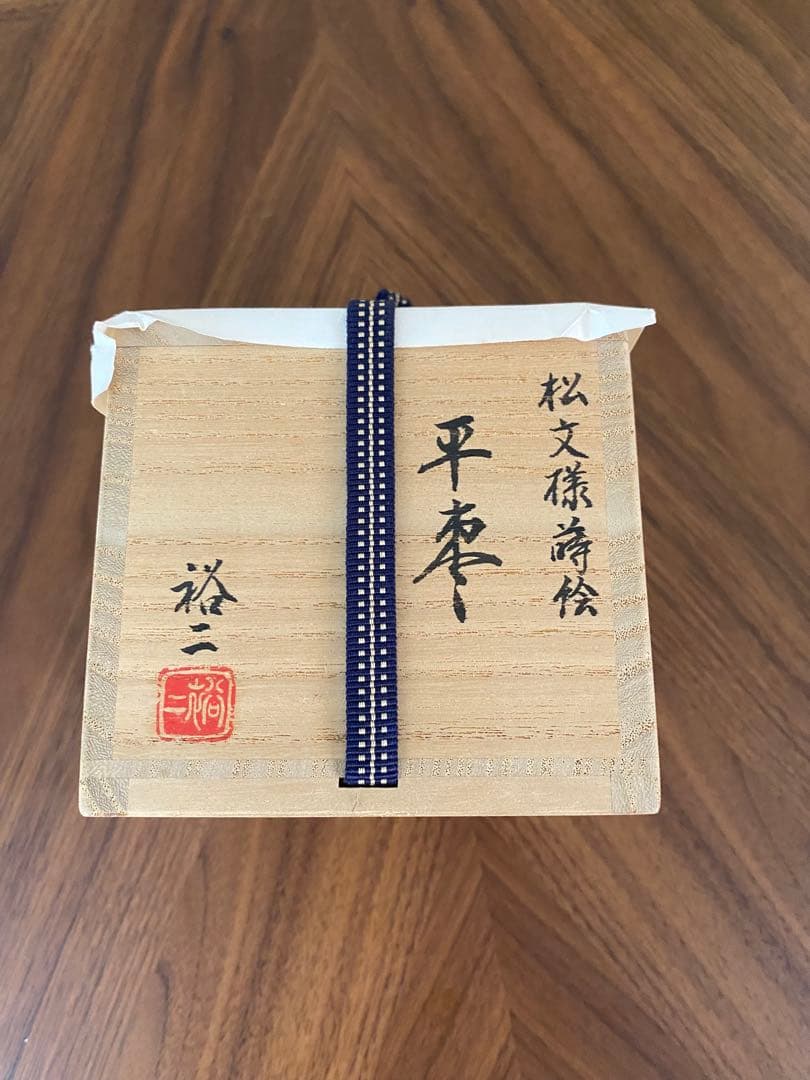 松文様蒔絵
平棗
裕二
裕二